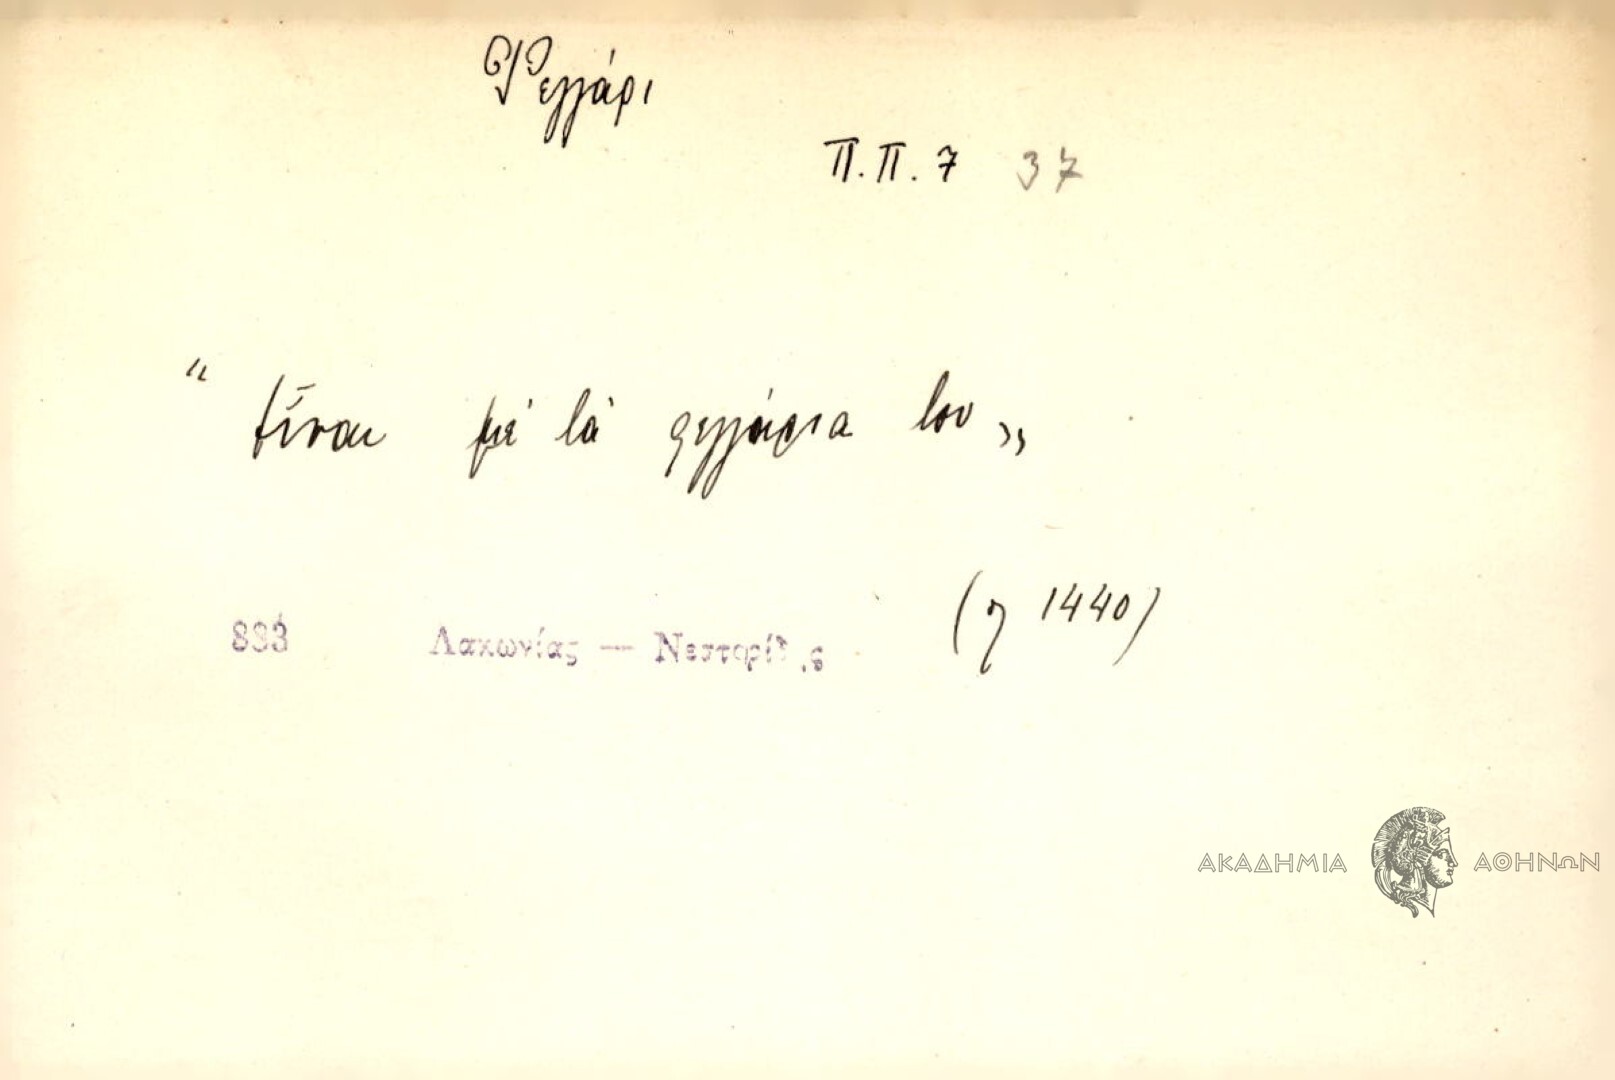 Φεγγάρι
Π.Π. 7 37
“ Εἶναι μέ τά φεγγάρια του „
(η 1440)
883 Λακωνίας — Νεστορίδης
ΑΚΑΔΗΜΙΑ ΑΘΗΝΩΝ